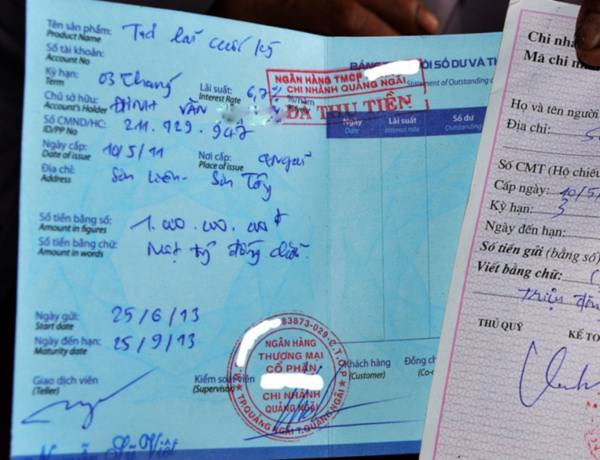 Tên sản phẩm: Trả lãi cuối kỳ
Product Name
Số tài khoản:
Account No
Kỳ hạn: 03 tháng Lãi suất: 6,7 %/năm
Term Interest Rate
Chủ sở hữu: ĐINH VĂN
Account's Holder
Số CMND/HC: 211.729.947
ID/PP No
Ngày cấp: 10/5/11 Nơi cấp: QNgãi
Date of issue Place of issue
Địa chỉ: Sơn Tây
Address
Số tiền bằng số: 1.000.000.000đ
Amount in figures
Số tiền bằng chữ: Một tỷ đồng chẵn.
Amount in words
Ngày gửi: 25/6/13
Start date
Ngày đến hạn: 25/9/13
Maturity date
Giao dịch viên Kiểm soát viên Khách hàng Đồng ch
(Teller) (Supervisor) (Customer) (Co-
NGÂN HÀNG TMCP
CHI NHÁNH QUẢNG NGÃI
ĐÃ THU TIỀN
SỐ DƯ VÀ TH
Statement of Outstanding
Ngày Lãi suất Số dư
Date Interest rate Outstanding
83873-029-C.T.C.P
NGÂN HÀNG
THƯƠNG MẠI
CỔ PHẦN
CHI NHÁNH
QUẢNG NGÃI
TP.QUẢNG NGÃI T.QUẢNG NGÃI
Chi nhá
Mã chi n
Họ và tên người
Địa chỉ:
Số CMT (Hộ chiếu
Cấp ngày: 10/5
Kỳ hạn: 3
Ngày đến hạn:
Số tiền gửi (bằng số)
Viết bằng chữ:
triệu đồn
THỦ QUỸ KẾ TO